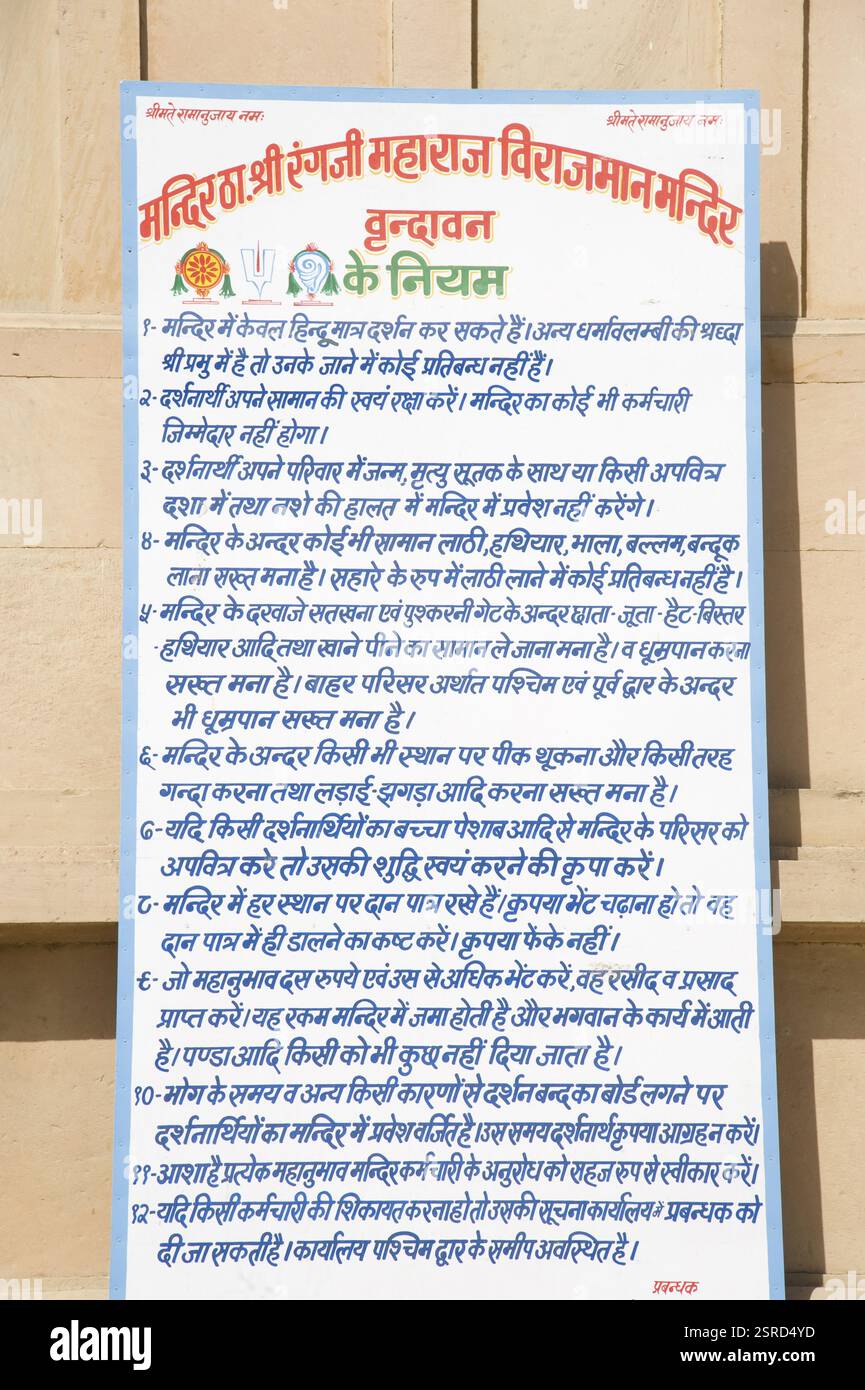 श्रीमते रामानुजाय नमः
श्रीमते रामानुजाय नमः
मन्दिर ठा. श्री रंगजी महाराज विराजमान मन्दिर
वृन्दावन
के नियम
१- मन्दिर में केवल हिन्दू मात्र दर्शन कर सकते हैं। अन्य धर्मावलम्बी की श्रध्दा
श्री प्रभु में है तो उनके जाने में कोई प्रतिबन्ध नहीं हैं।
२- दर्शनार्थी अपने सामान की स्वयं रक्षा करें। मन्दिर का कोई भी कर्मचारी
जिम्मेदार नहीं होगा।
३- दर्शनार्थी अपने परिवार में जन्म, मृत्यु सूतक के साथ या किसी अपवित्र
दशा में तथा नशे की हालत में मन्दिर में प्रवेश नहीं करेंगे।
४- मन्दिर के अन्दर कोई भी सामान लाठी, हथियार, भाला, बल्लम, बन्दूक
लाना सख्त मना है। सहारे के रुप में लाठी लाने में कोई प्रतिबन्ध नहीं है।
५- मन्दिर के दरवाजे सतखना एवं पुश्करनी गेट के अन्दर छाता - जूता - हैट - बिस्तर
हथियार आदि तथा खाने पीने का सामान ले जाना मना है। व धूम्रपान करना
सख्त मना है। बाहर परिसर अर्थात पश्चिम एवं पूर्व द्वार के अन्दर
भी धूम्रपान सख्त मना है।
६- मन्दिर के अन्दर किसी भी स्थान पर पीक थूकना और किसी तरह
गन्दा करना तथा लड़ाई-झगड़ा आदि करना सख्त मना है।
७- यदि किसी दर्शनार्थियों का बच्चा पेशाब आदि से मन्दिर के परिसर को
अपवित्र करे तो उसकी शुद्धि स्वयं करने की कृपा करें।
८- मन्दिर में हर स्थान पर दान पात्र रखे हैं। कृपया भेंट चढ़ाना हो तो वह
दान पात्र में ही डालने का कष्ट करें। कृपया फेंके नहीं।
९- जो महानुभाव दस रुपये एवं उस से अधिक भेंट करें, वह रसीद व प्रसाद
प्राप्त करें। यह रकम मन्दिर में जमा होती है और भगवान के कार्य में आती
है। पण्डा आदि किसी को भी कुछ नहीं दिया जाता है।
१०- भोग के समय व अन्य किसी कारणों से दर्शन बन्द का बोर्ड लगने पर
दर्शनार्थियों का मन्दिर में प्रवेश वर्जित है। उस समय दर्शनार्थ कृपया आग्रह न करें।
११- आशा है प्रत्येक महानुभाव मन्दिर कर्मचारी के अनुरोध को सहज रुप से स्वीकार करें।
१२- यदि किसी कर्मचारी की शिकायत करना हो तो उसकी सूचना कार्यालय में प्रबन्धक को
दी जा सकती है। कार्यालय पश्चिम द्वार के समीप अवस्थित है।
प्रबन्धक
a
alamy
Image ID: 2SRD4YD
www.alamy.com